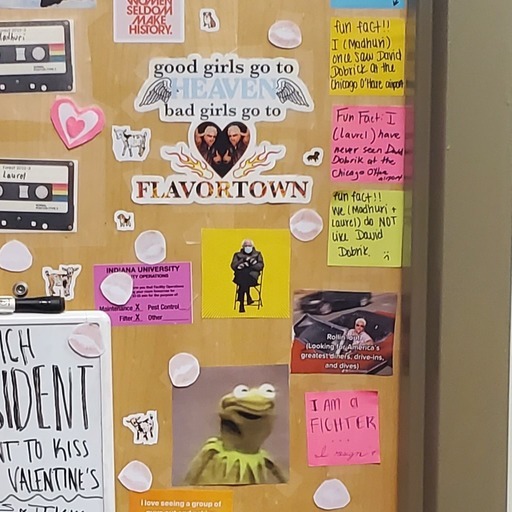 WOMEN
SELDOM
MAKE
HISTORY.
Madhuri
good girls go to
HEAVEN
bad girls go to
FLAVORTOWN
fun fact!!
I (Madhuri)
once saw David
Dobrik at the
Chicago O'Hare airport
Fun Fact: I
(laurel) have
never seen David
Dobrik at the
Chicago O'Hare
airport
fun fact!!
We (Madhuri +
laurel) do NOT
like David
Dobrik.
Laurel
INDIANA UNIVERSITY
Y OPERATIONS
Maintenance X Pest Control
Filter X Other
Rollin' out
(Looking for America's
greatest diners, drive-ins,
and dives)
ICH
SIDENT
NT TO KISS
VALENTINE'S
I AM A
FIGHTER
...
I love seeing a group of